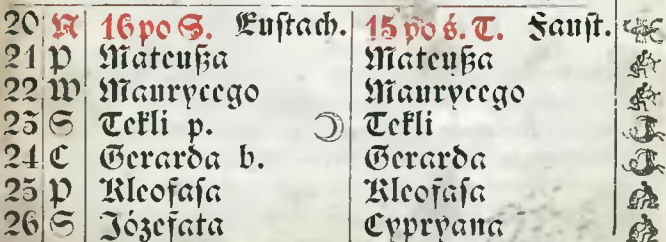 20 N 16 po S. Eustach. 15 po ś. T. Faust.
21 P Mateußa Mateußa
22 W Maurycego Maurycego
23 S Tekli p. ☽ Tekli
24 C Gerarda b. Gerarda
25 P Kleofasa Kleofasa
26 S Józefata Cypryana